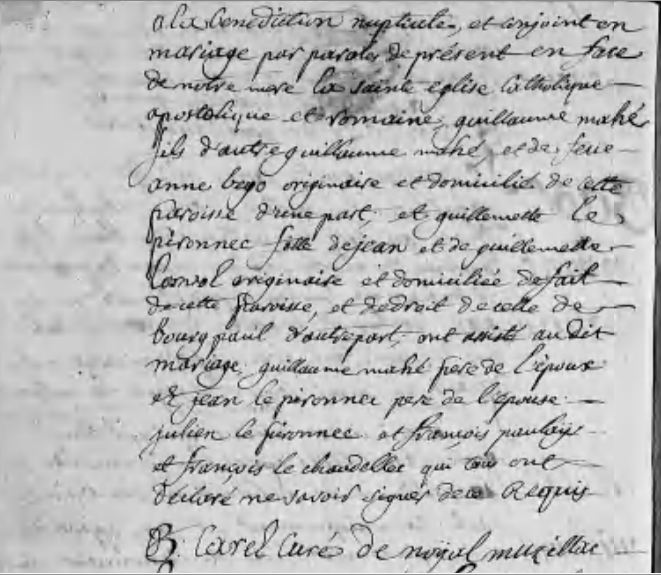 a la benediction nuptiale, et conjoint en
mariage par paroles de présent en face
de notre mere la sainte eglise Catholique
apostolique et romaine, guillaume mahé
fils d'autre guillaume mahé, et de feue
anne bego originaire et domicilié de cette
paroisse d'une part, et guillemette le
pironnec fille de jean et de guillemette
originaire et domiciliée de fait
de cette paroisse, et de droit de celle de
bourg paul d'autre part, ont assisté au dit
mariage, guillaume mahé pere de l'époux
et jean le pironnec pere de l'épouse
julien le pironnec et françois
et françois le chandellec qui tous ont
déclaré ne savoir signer de ce Requis
Carel Curé de noyal muzillac